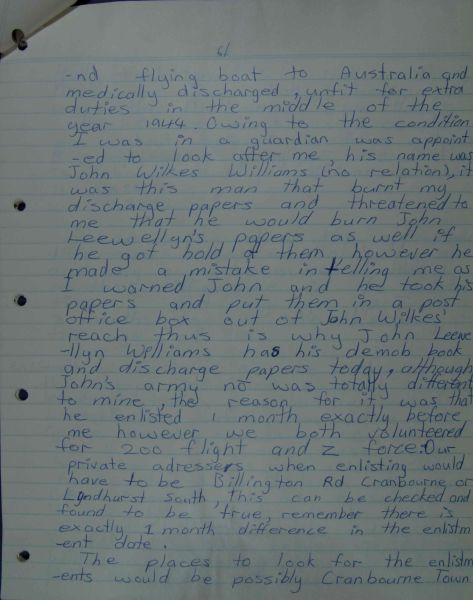 61
-nd flying boat to Australia and
medically discharged, unfit for extra
duties in the middle of the
year 1944. Owing to the condition
I was in a guardian was appoint
-ed to look after me, his name was
John Wilkes Williams (no relation), it
was this man that burnt my
discharge papers and threatened to
me that he would burn John
Leewellyn's papers as well if
he got hold of them, however he
made a mistake in telling me as
I warned John and he took his
papers and put them in a post
office box out of John Wilkes'
reach thus is why John Leewe
-llyn Williams has his demob book
and discharge papers today, although
John's army no was totally different
to mine, the reason for it was that
he enlisted 1 month exactly before
me however we both volunteered
for 200 flight and Z force. Our
private adressers when enlisting would
have to be Billington Rd Cranbourne or
Lyndhurst South, this can be checked and
found to be true, remember there is
exactly 1 month difference in the enlistm
-ent date.
The places to look for the enlistm
-ents would be possibly Cranbourne Town